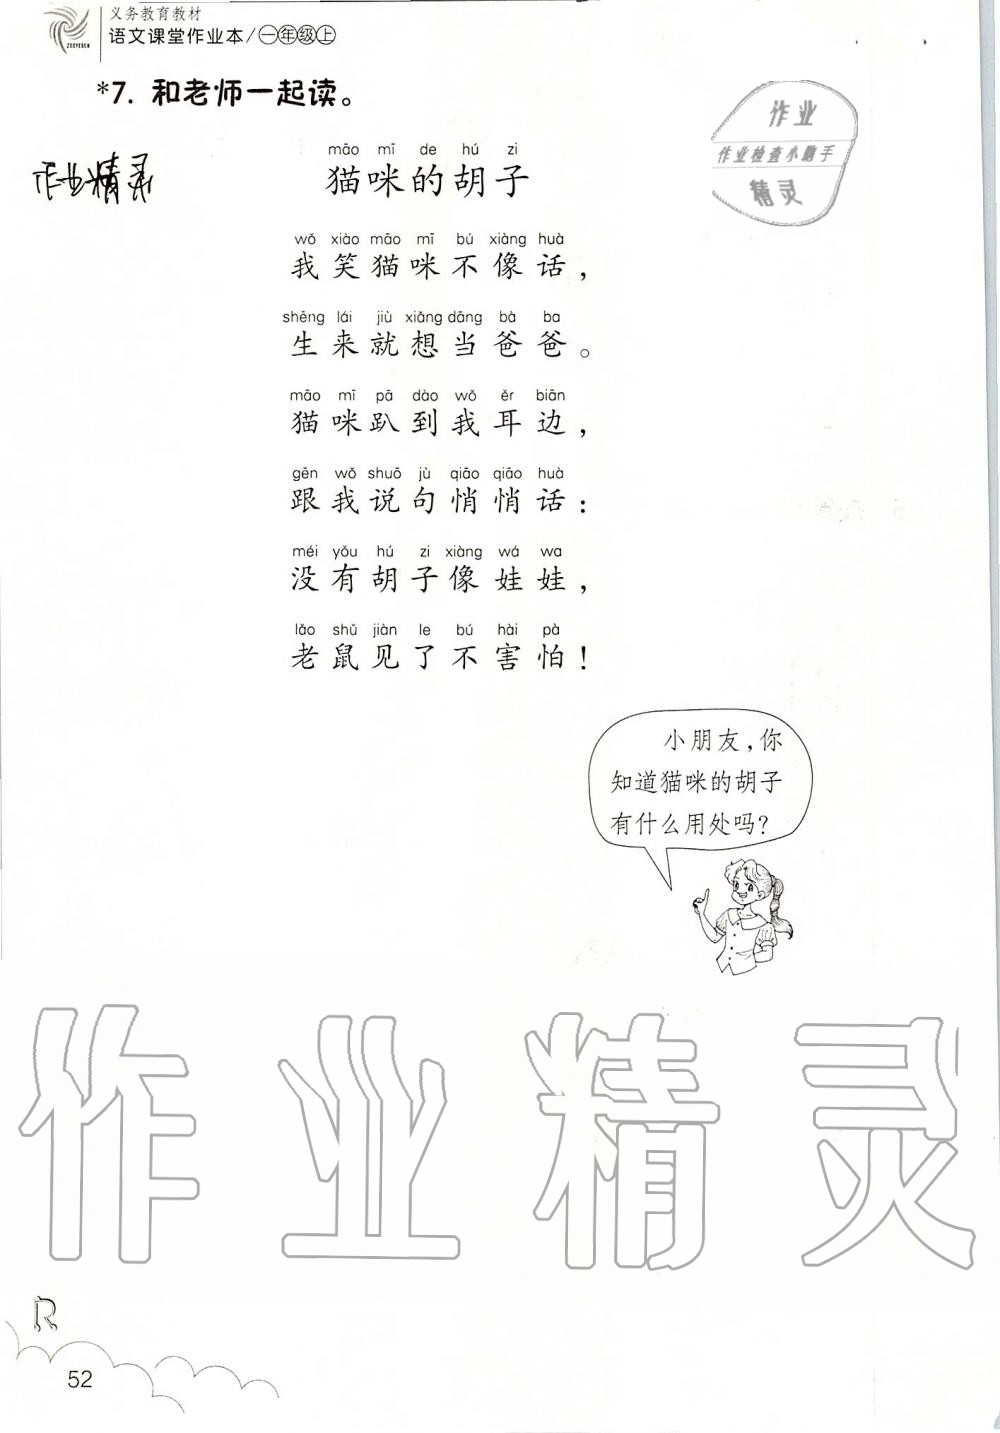 义务教育教材
语文课堂作业本/一年级上
ZUOYEBEN
*7. 和老师一起读。
作业
作业检查小助手
精灵
作业精灵
māo mī de hú zi
猫咪的胡子
wǒ xiào māo mī bú xiàng huà
我笑猫咪不像话，
shēng lái jiù xiǎng dāng bà ba
生来就想当爸爸。
māo mī pā dào wǒ ěr biān
猫咪趴到我耳边，
gēn wǒ shuō jù qiāo qiāo huà
跟我说句悄悄话：
méi yǒu hú zi xiàng wá wa
没有胡子像娃娃，
lǎo shǔ jiàn le bú hài pà
老鼠见了不害怕！
小朋友，你
知道猫咪的胡子
有什么用处吗？
作业精灵
R
52